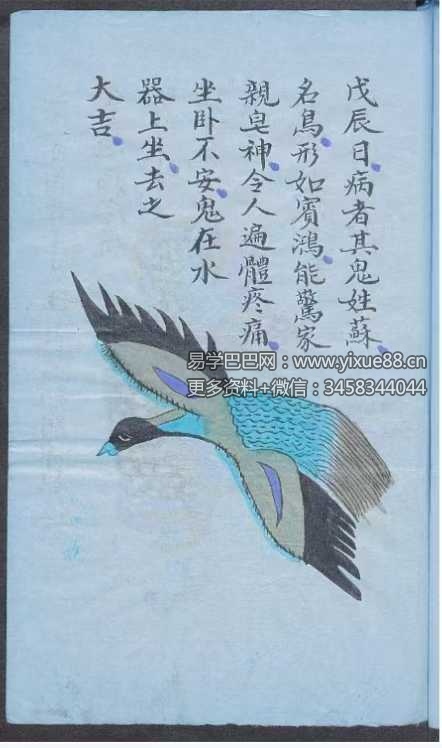 戊辰日病者其鬼姓蘇
名鳥形如賓鴻能驚家
親皂神令人遍體疼痛
坐卧不安鬼在水
器上坐去之
大吉
易学巴巴网：www.yixue88.cn
更多资料+微信：3458344044